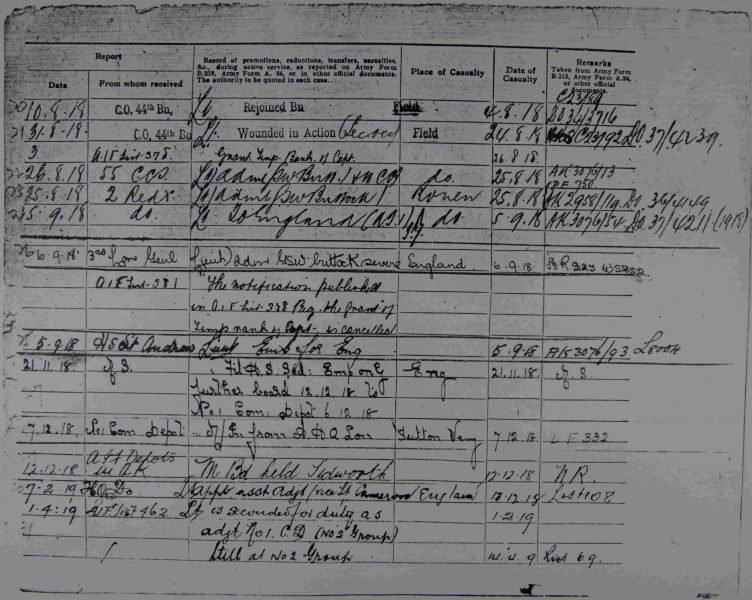 Report
Record of promotions, reductions, transfers, casualties, &c., during active service, as reported on Army Form B.213, Army Form A. 36, or in other official documents. The authority to be quoted in each case.
Place of Casualty
Date of Casualty
Remarks
Taken from Army Form B.213, Army Form A. 36, or other official documents.
Date
From whom received
10.8.18 C.O. 44th Bn, Lt Rejoined Bn Field 4.8.18 DO34/3716
31.8.18 C.O. 44th Bn, Lt. Wounded in Action (Second) Field 24.8.18 C23/92 DO 37/4239
3 A.I.F List 378. Grant. Temp. Rank of Capt. 26.8.18
26.8.18 55 CCS Lt adm G.S.W. Buttock do. 25.8.18 AK3076/13
25.8.18 2 Redx Lt adm G.S.W. Buttock Rouen 25.8.18 AK2958/119 DO 36/4149
5.9.18 do. Lt To England do 5.9.18 AK3076/54 DO.37/4211 (1918)
6.9.18 3rd Lon Genl Lieut adm GSW. buttock severe England 6.9.18 HR
A.I.F List 381 The notification published
in A.I.F List 378 Reg. the grant of
Temp rank of Capt - is cancelled
5-9-18 HS St Andrew Lieut Emb for Eng 5.9.18 AK3076/93
21.11.18 Fit H.S. Sed: Emp only Eng 21.11.18
further board 12.12.18 to
No1 Com: Depot 6.12.18
7.12.18. No1 Com Depot In from Lon Sutton Veny 7.12.18 LF 332
AIF Depots
in UK
12.12.18 M Bd held Tidworth 12.12.18 N.R.
7-2-19 H.Q. Do Lt appt. asst Adjt vice Lt Cameron England 13.12.18 List 108
1.4.19 AIF/List 462 Lt is seconded for duty as 1.2.19
adjt No1. C.D (No 2 Group)
Still at No 2 Group 14.4.9 List 69.